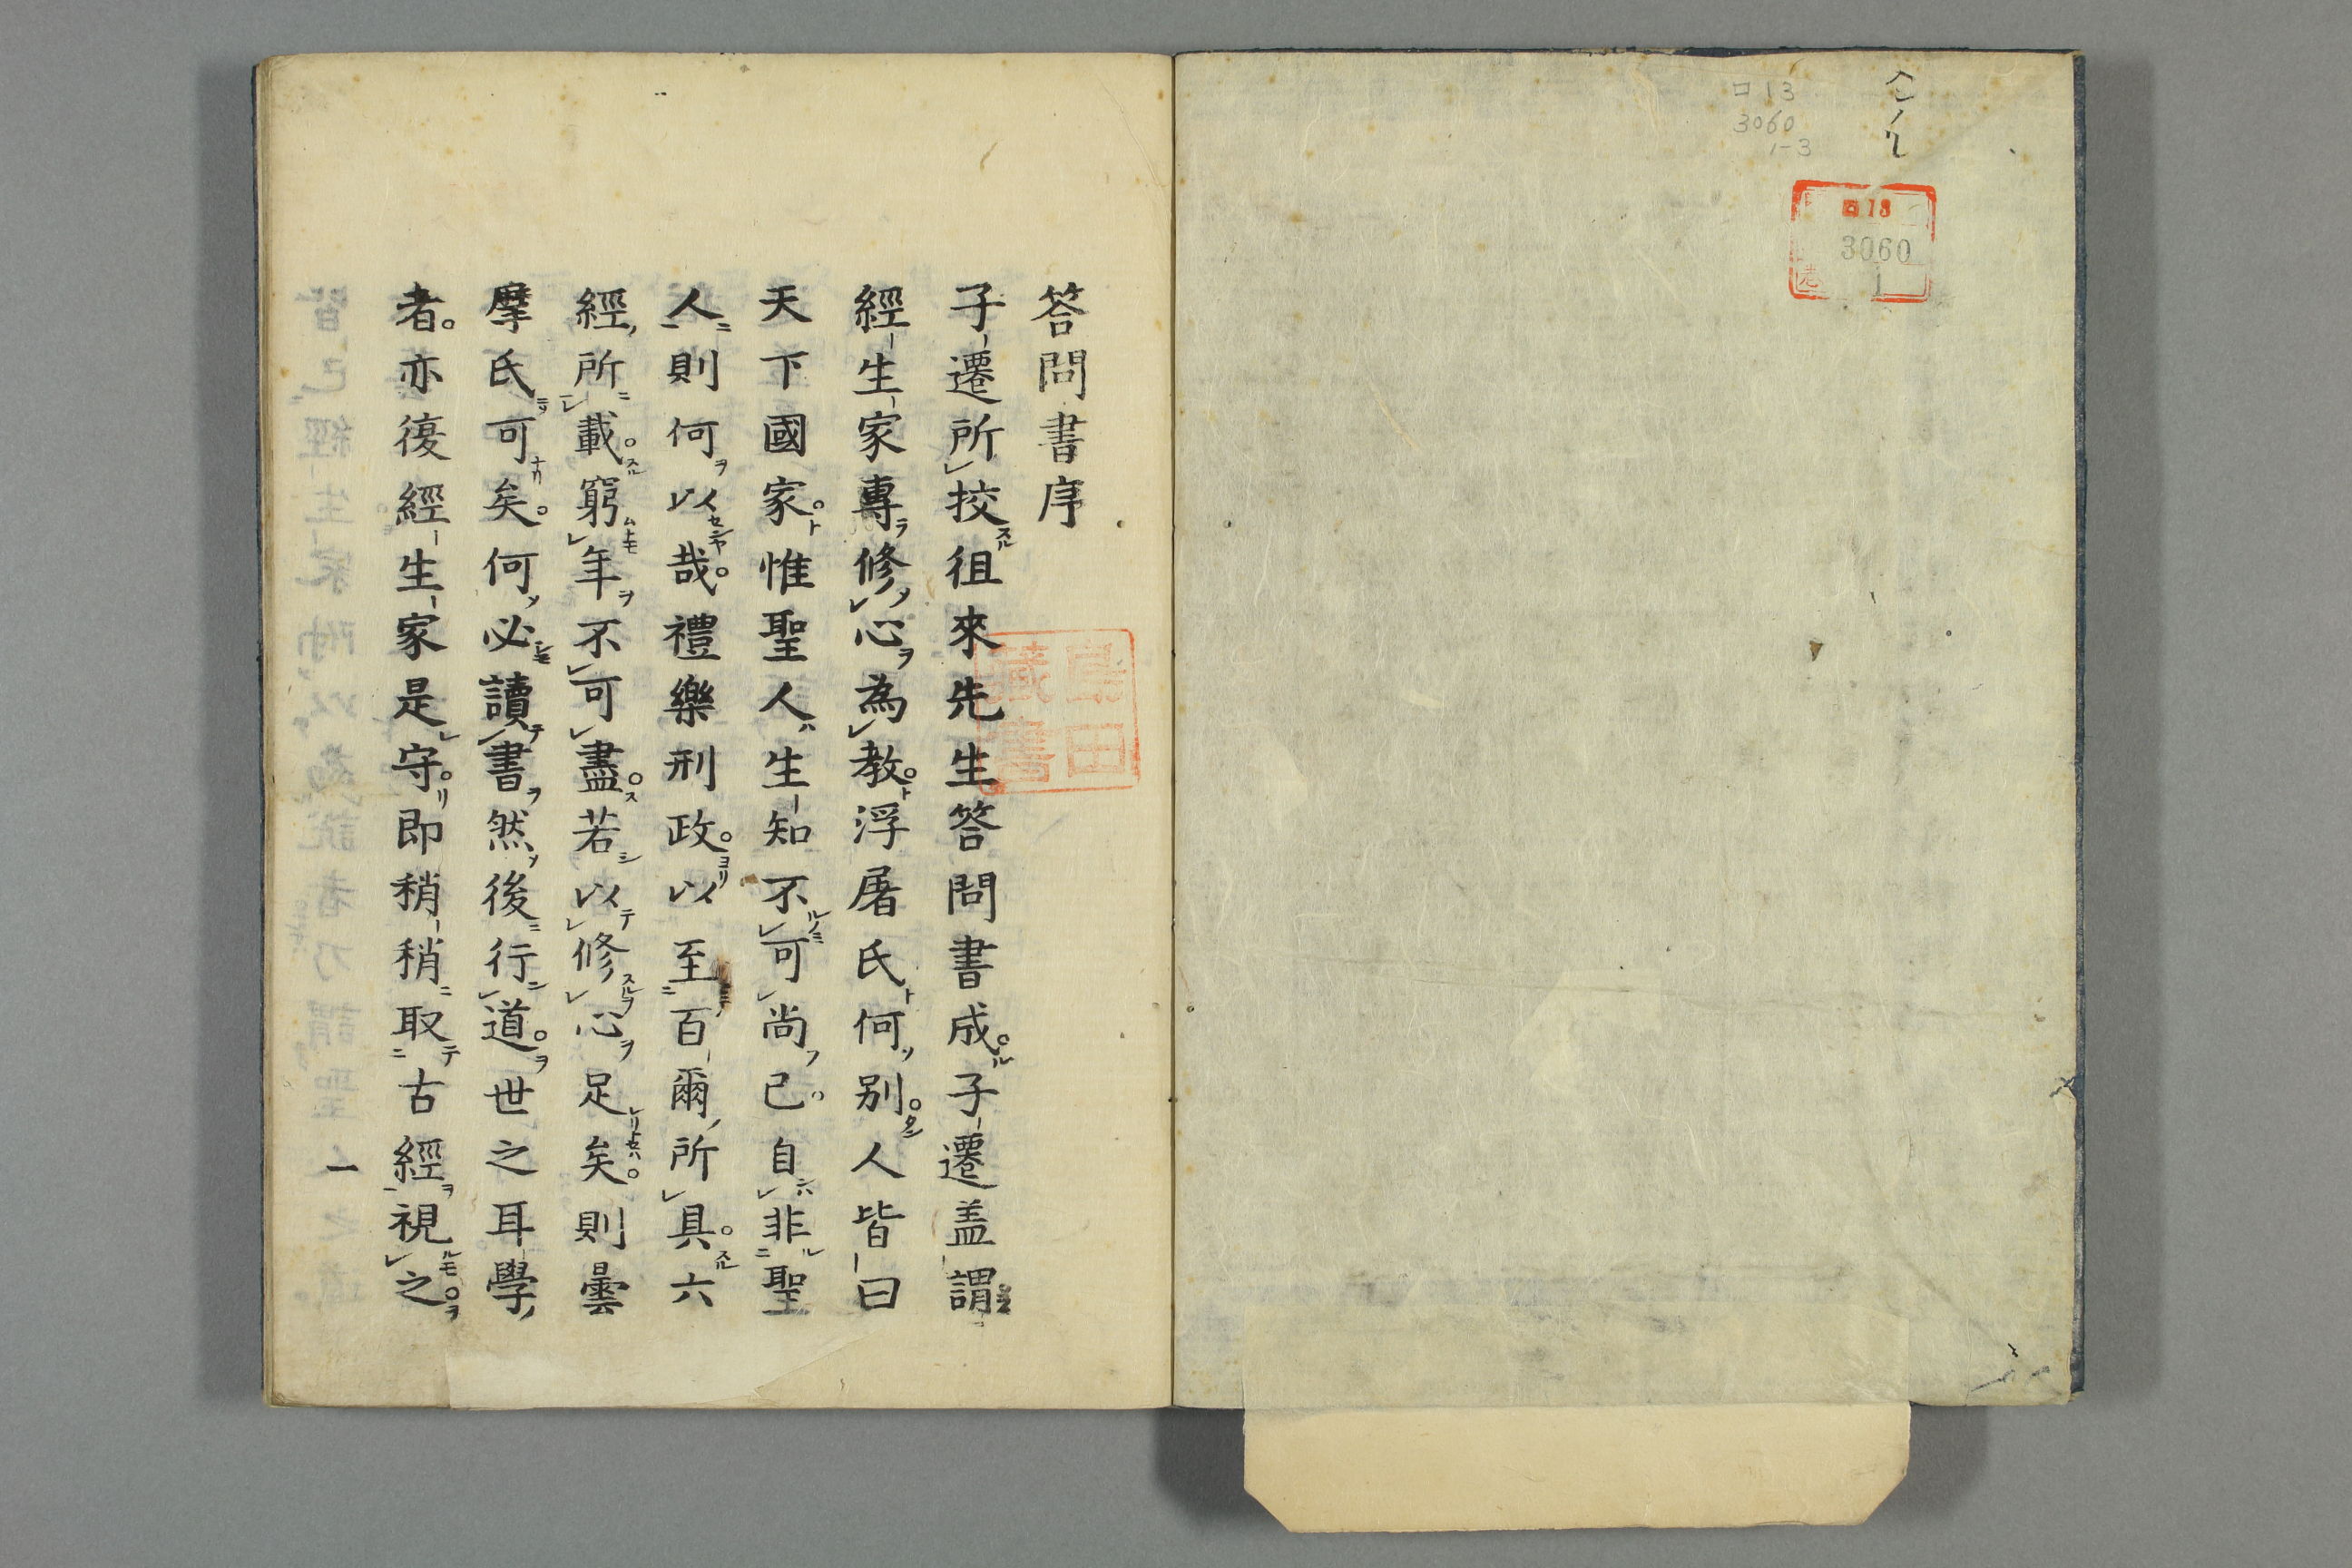 ロ13
3060
1-3
ロ13
3060
1
答問書序
子遷所挍徂來先生答問書成子遷盖謂
經生家專修心為教浮屠氏何別人皆曰
天下國家惟聖人生知不可尚已自非聖
人則何以哉禮樂刑政以至百爾所具六
經所載窮年不可盡若以修心足矣則曇
摩氏可矣何必讀書然後行道世之耳學
者亦復經生家是守即稍稍取古經視之
一